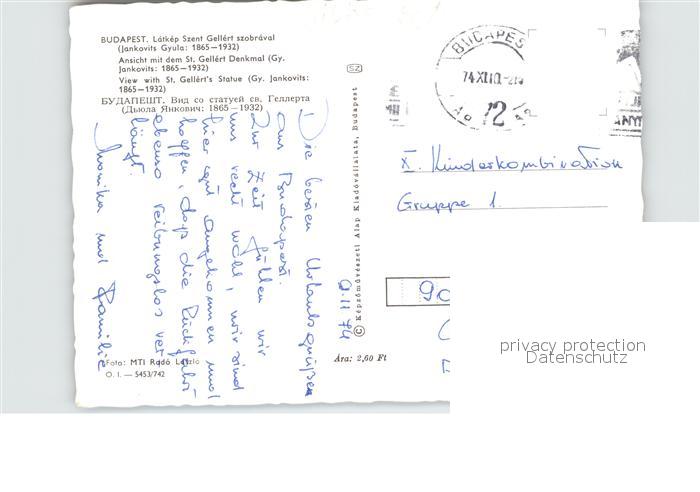 BUDAPEST. Látkép Szent Gellért szobrával
(Jankovits Gyula: 1865—1932)
Ansicht mit dem St. Gellért Denkmal (Gy.
Jankovits: 1865—1932)
View with St. Gellért's Statue (Gy. Jankovits:
1865—1932)
БУДАПЕШТ. Вид со статуей св. Геллерта
(Дьюла Янкович: 1865—1932)
Die besten Urlaubsgrüße
aus Budapest.
Zur Zeit fühlen wir
uns recht wohl, wir sind
hier gut angekommen und
hoffen, daß die Rückfahrt
ebenso reibungslos ver-
läuft.
Monika und Familie
Foto: MTI Radó László
O. I. — 5453/742
SZ
© Képzőművészeti Alap Kiadóvállalata, Budapest
Ára: 2,60 Ft
BUDAPEST
12
X. Kinderkombination
Gruppe 1.
90
privacy protection
Datenschutz